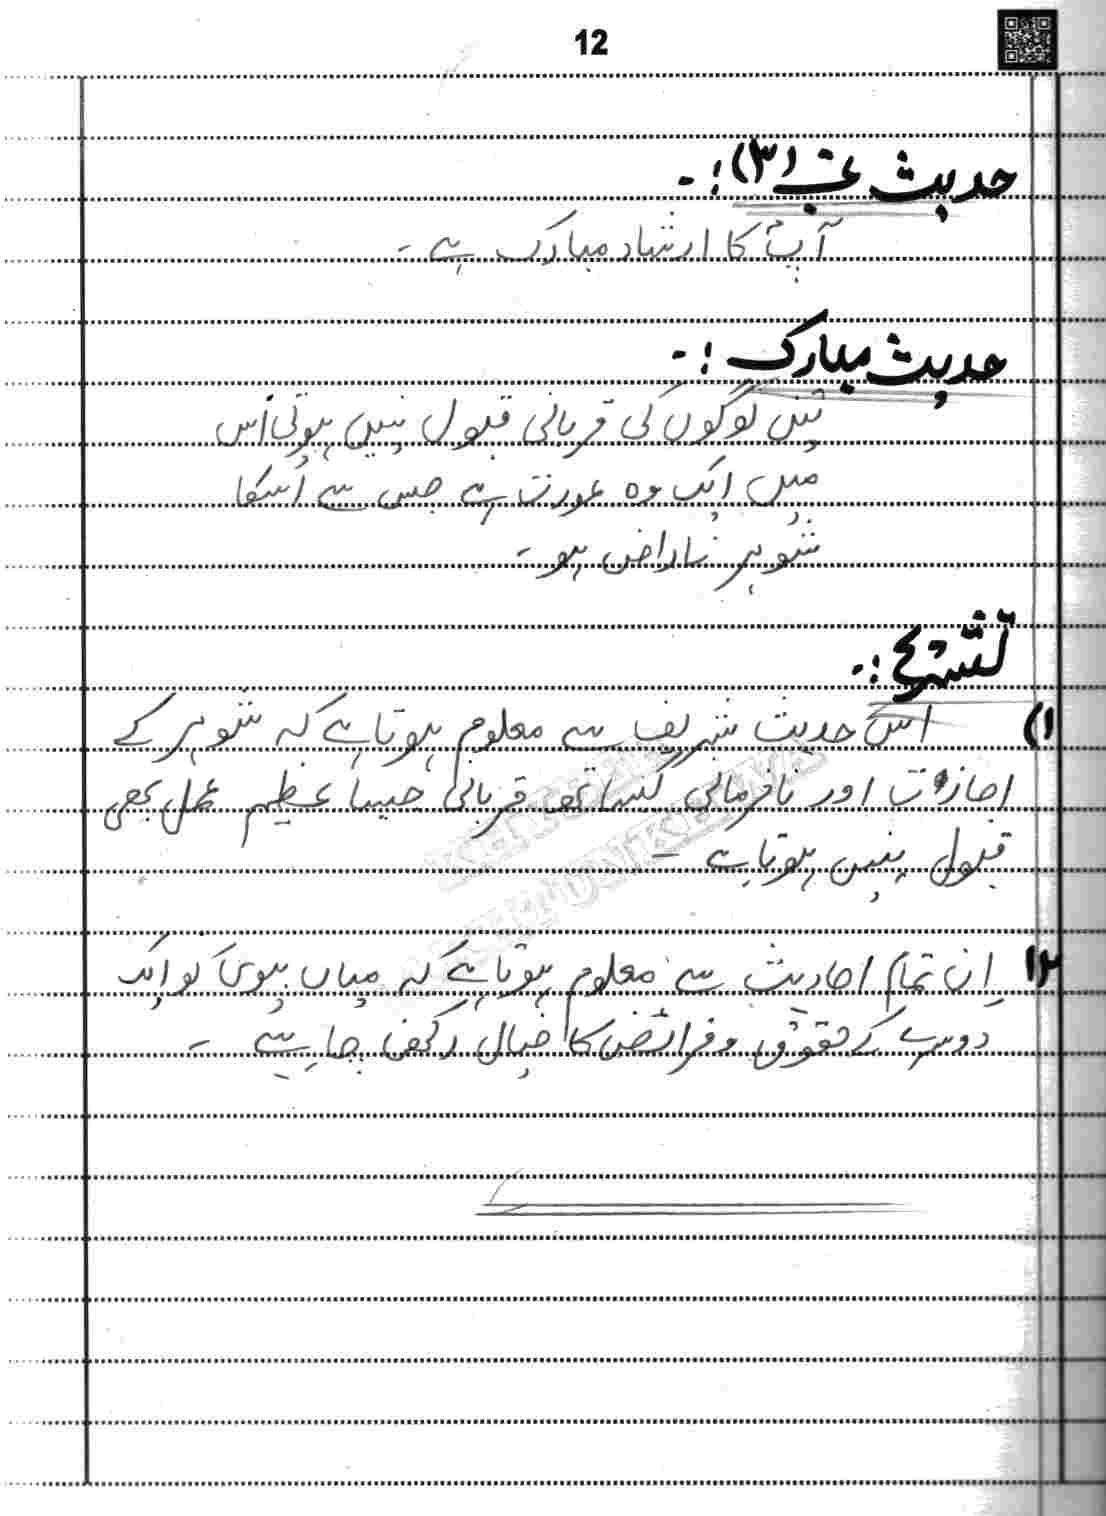 12
حدیث نمبر (۳) :-
آپؐ کا ارشاد مبارک ہے -
حدیث مبارک :-
تین لوگوں کی قربانی قبول نہیں ہوتی اُس
میں ایک وہ عورت ہے جس سے اُسکا
شوہر ناراض ہو -
تشریح :-
۱) اس حدیث شریف سے معلوم ہوتا ہے کہ شوہر کے
اجازت اور نافرمانی کیساتھ قربانی جیسا عظیم عمل بھی
قبول نہیں ہوتا ہے -
۲) اِن تمام احادیث سے معلوم ہوتا ہے کہ میاں بیوی کو ایک
دوسرے کے حقوق و فرائض کا خیال رکھنا چاہیے -